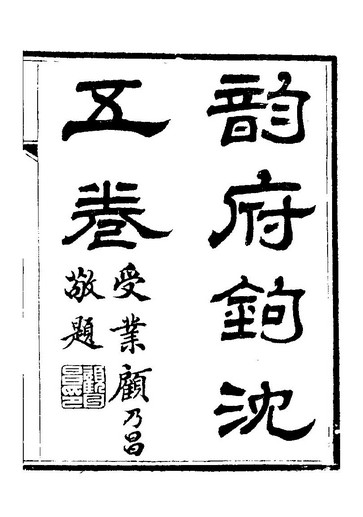 韵府鉤沈
五卷
受業顧乃昌
敬題